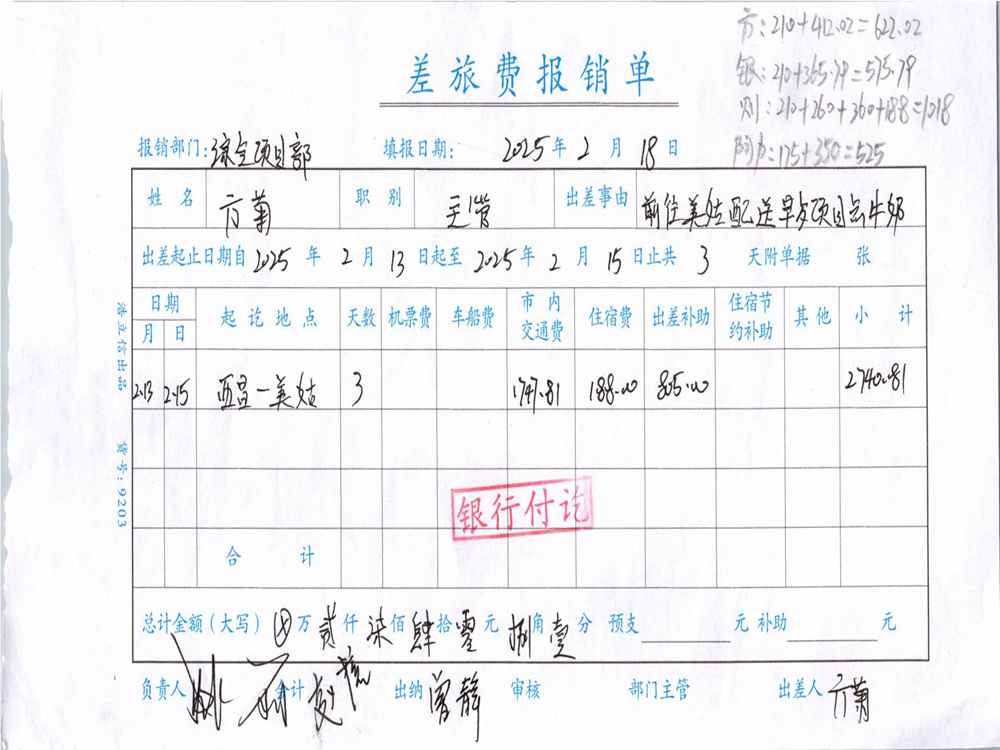 方：210+412.02=622.02
银：210+365.79=575.79
则：210+260+360+188=1018
阿力：175+350=525
差旅费报销单
报销部门：凉仓项目部 填报日期： 2025年 2月 18日
姓名 方菊 职别 主管 出差事由 前往美姑配送早点项目牛奶
出差起止日期自2025年 2月 13日起至 2025年 2月 15日止共 3 天附单据 张
日期 起讫地点 天数 机票费 车船费 市内交通费 住宿费 出差补助 住宿节约补助 其他 小计
月 日
2.13 2.15 西昌一美姑 3 1747.81 188.00 805.00 2740.81
银行付讫
合计
总计金额（大写） 万 贰仟 柒佰 肆拾 零元 捌角 壹分 预支 元 补助 元
负责人 会计 出纳 曾静 审核 部门主管 出差人 方菊
浩立信出品 货号：9203